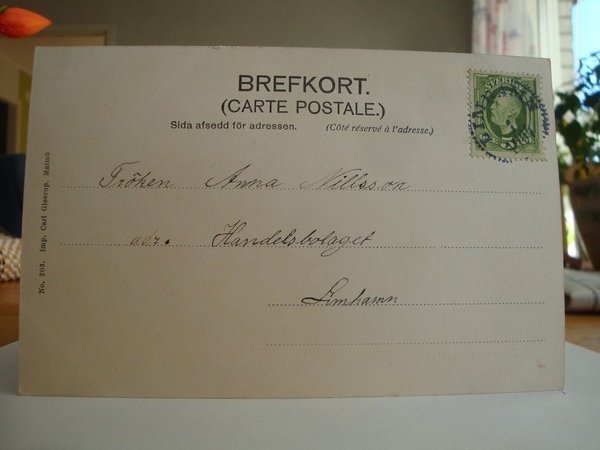 BREFKORT.
(CARTE POSTALE.)
Sida afsedd för adressen. (Côté réservé à l'adresse.)
SVERIGE
Fröken Anna Nillsson
adr. Handelsbolaget
Limhamn
No. 209. Imp. Carl Gleerup, Malmö